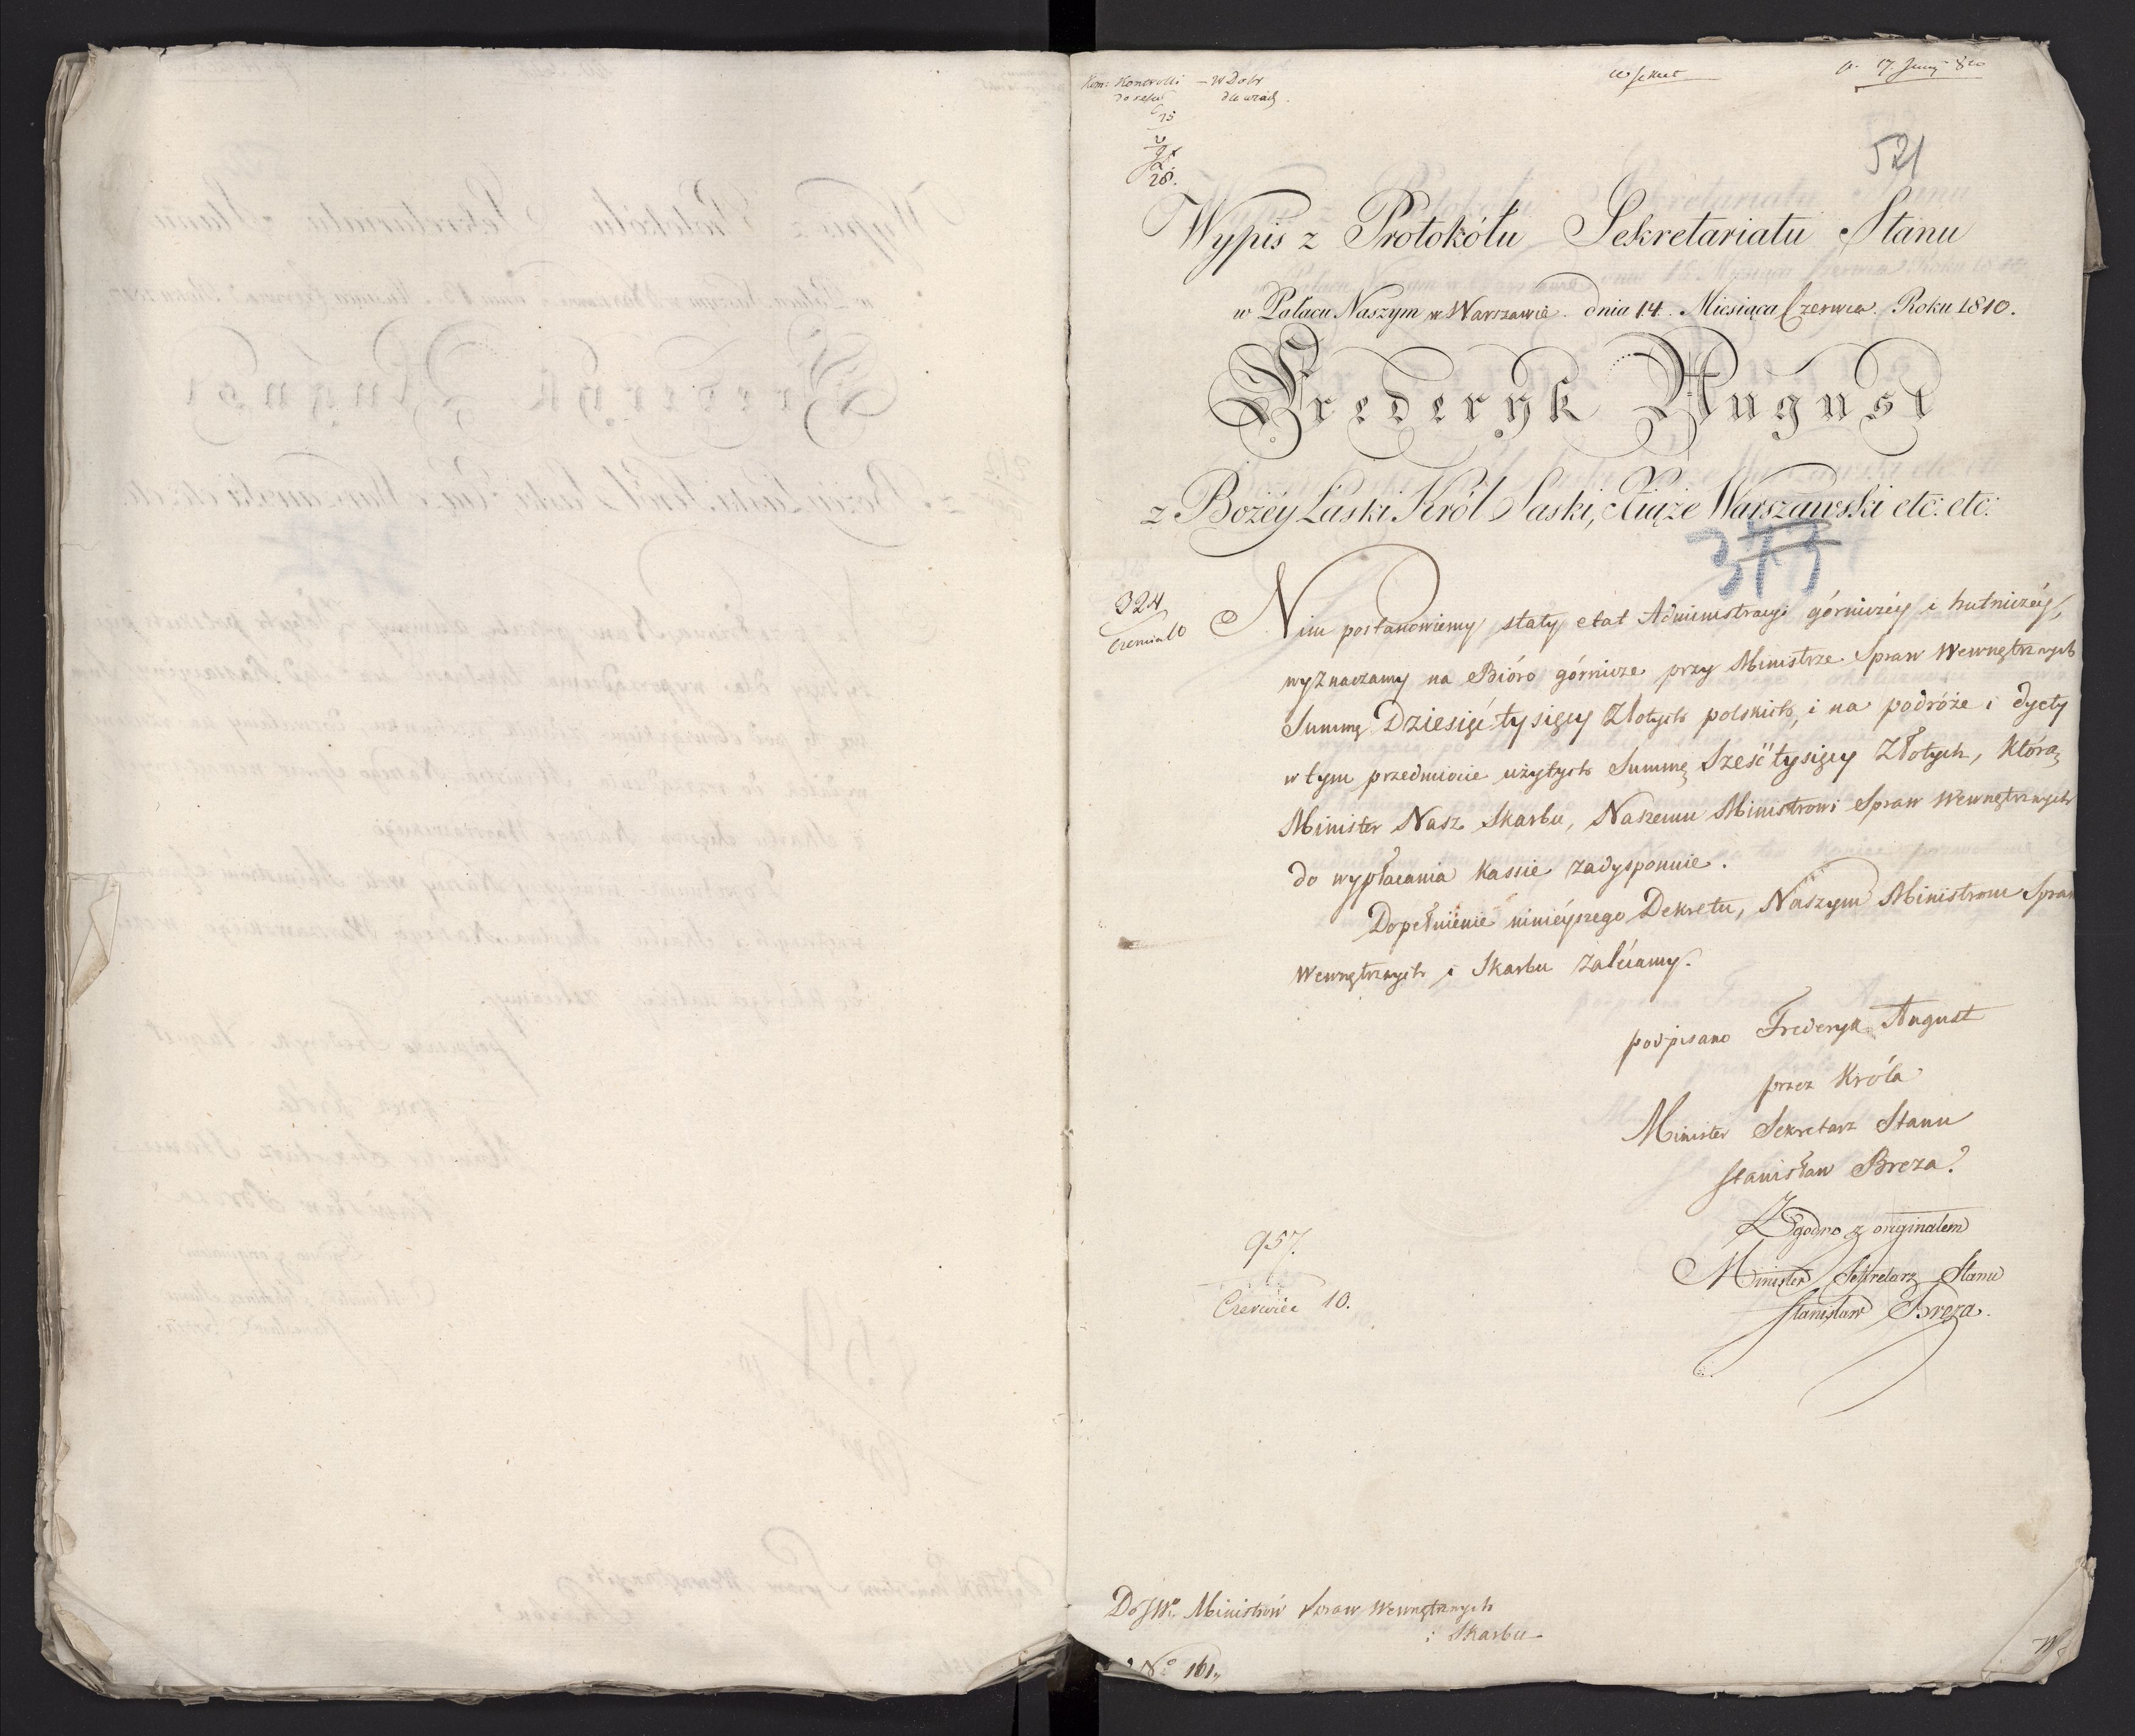 Kom: Kontrolli – W Dobr
17. Juny 810
521
Wypis z Protokółu Sekretariatu Stanu
w Pałacu Naszym w Warszawie dnia 14. Miesiąca Czerwca Roku 1810.
Frederyk August
z Bożéy Łaski Król Saski, Xiąże Warszawski etc: etc:
373
324
Nim postanowiemy stały etat Administracyi górniczéy i hutniczéy,
wyznaczamy na Bióro górnicze przy Ministrze Spraw Wewnętrznych
Summę Dziesięć tysięcy Złotych polskich, i na podróże i dyety
w tym przedmiocie użytych Summę Sześć tysięcy Złotych, którą
Minister Nasz Skarbu, Naszemu Ministrowi Spraw Wewnętrznych
do wypłacania kassie zadysponuie.
Dopełnienie ninieyszego Dekretu, Naszym Ministrom Spraw
Wewnętrznych i Skarbu zalécamy.
podpisano Frederyk August
przez Króla
Minister Sekretarz Stanu
Stanisław Breza.
Zgodno z originałem
Minister Sekretarz Stanu
Stanisław Breza.
957.
Czerwiec 10.
Do JWch Ministrów Spraw Wewnętrznych
i Skarbu
No 161.